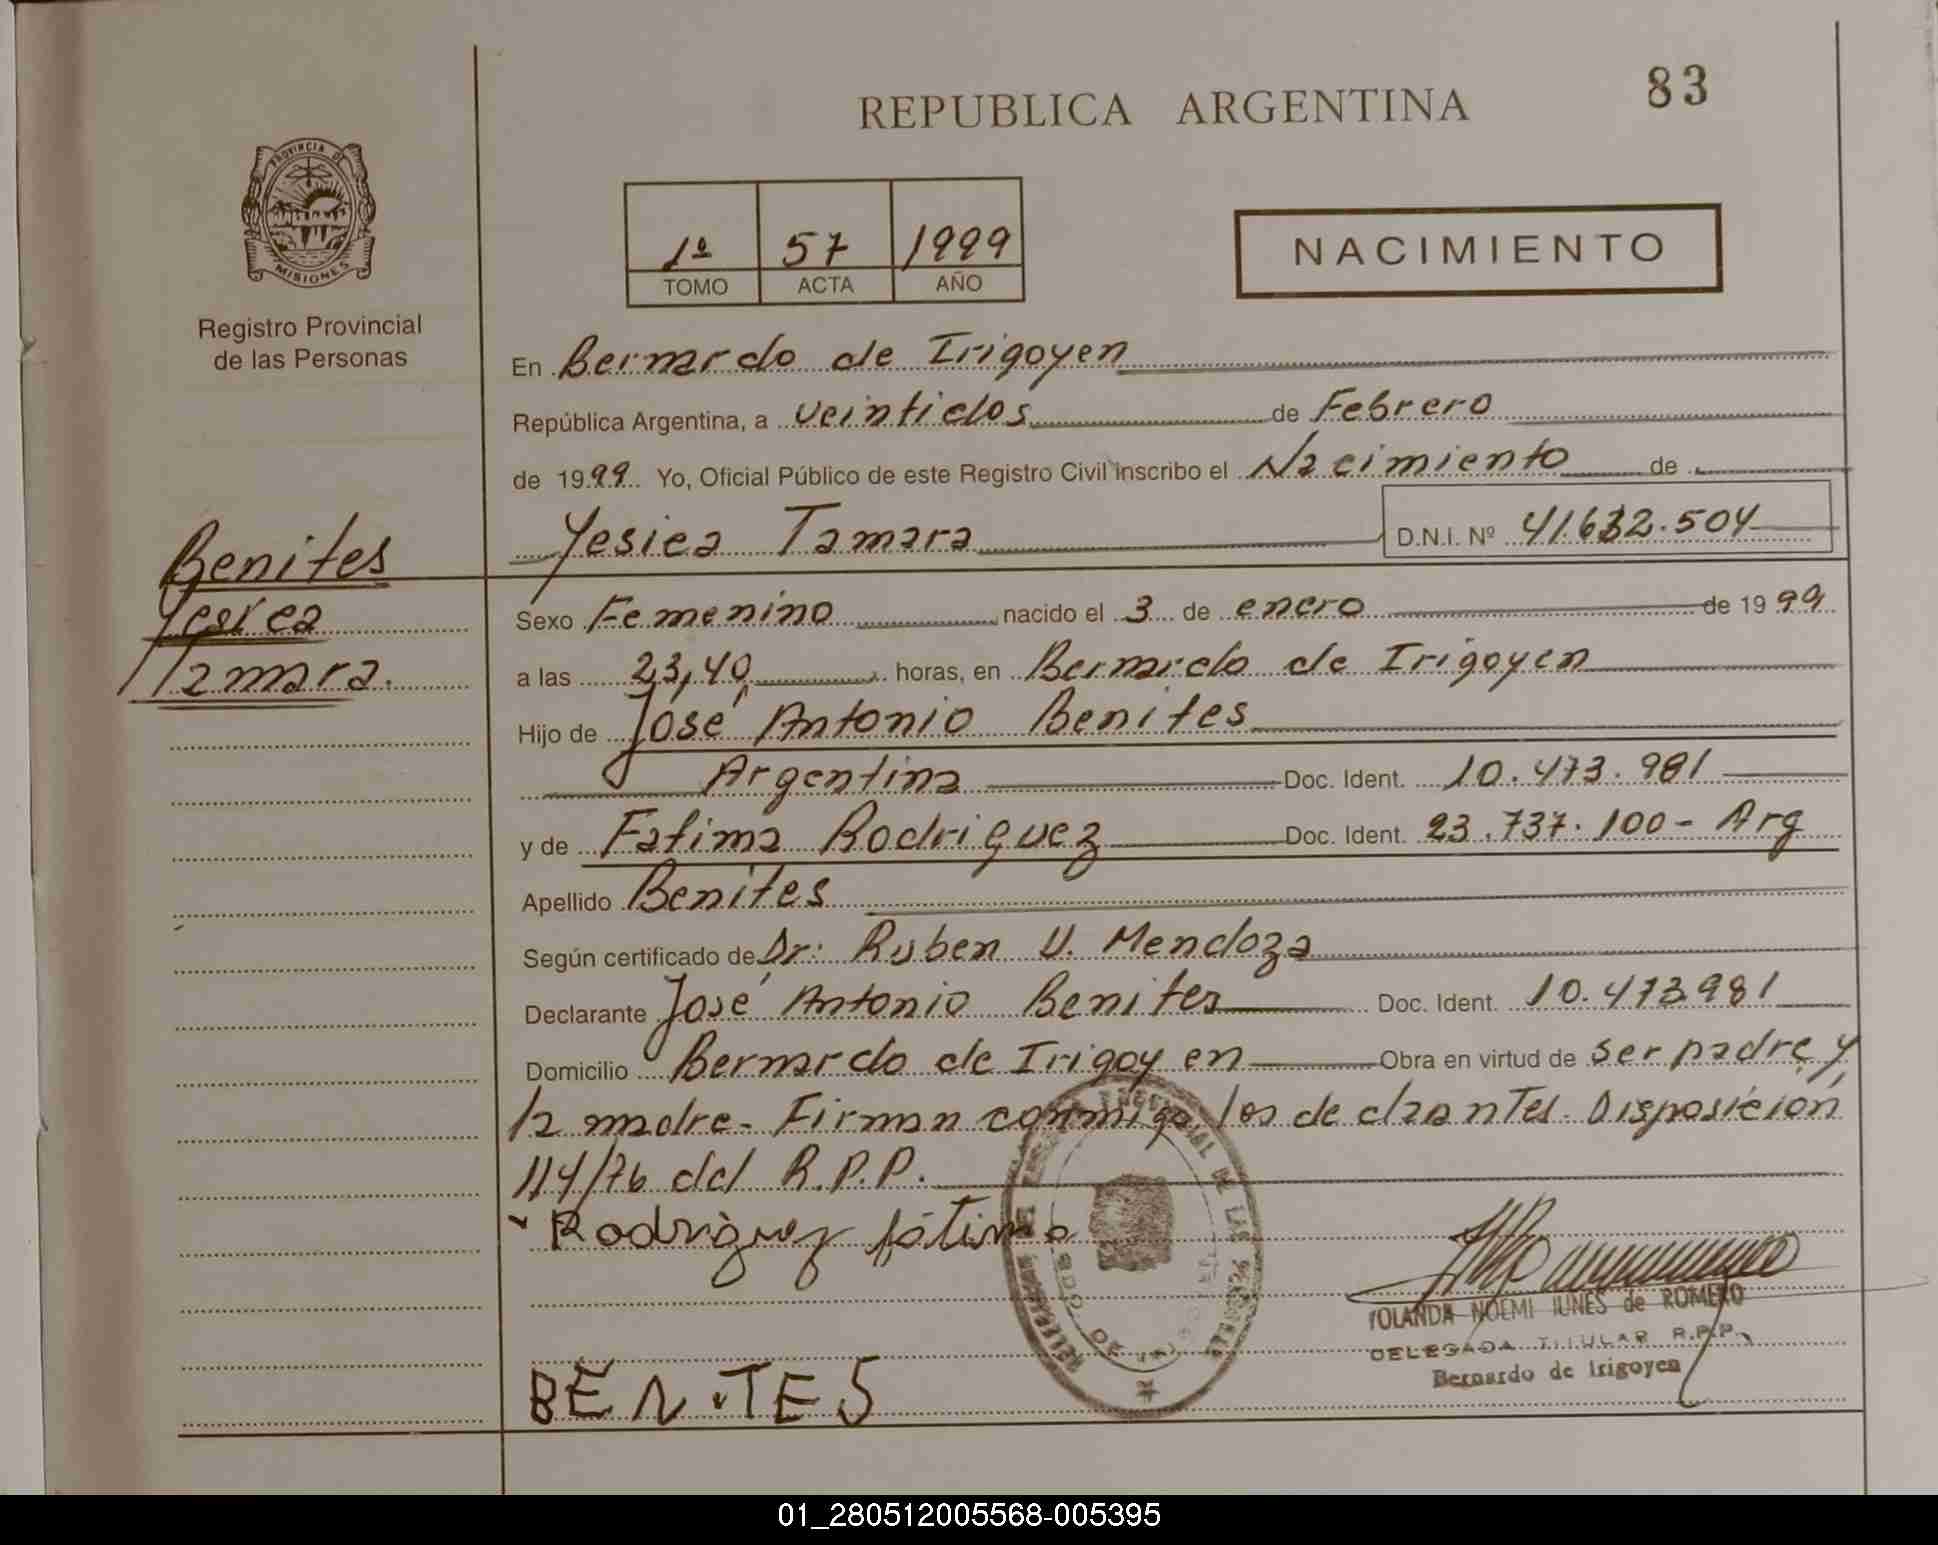 83
REPUBLICA ARGENTINA
PROVINCIA DE
MISIONES
Registro Provincial
de las Personas
1º 57 1999
TOMO ACTA AÑO
NACIMIENTO
En Bernardo de Irigoyen
República Argentina, a veintidos de Febrero
de 1999 Yo, Oficial Público de este Registro Civil inscribo el Nacimiento de
Yesica Tamara D.N.I. Nº 41.632.504
Benites
Yesica
Tamara.
Sexo Femenino nacido el 3 de enero de 1999
a las 23,40 horas, en Bernardo de Irigoyen
Hijo de José Antonio Benites
Argentina Doc. Ident. 10.473.981
y de Fatima Rodriguez Doc. Ident. 23.737.100- Arg
Apellido Benites
Según certificado de Dr: Ruben V. Mendoza
Declarante José Antonio Benites Doc. Ident. 10.473.981
Domicilio Bernardo de Irigoyen Obra en virtud de ser padre y
la madre- Firman conmigo los declarantes. Disposición
114/76 del R.P.P.
Rodriguez fátima
YOLANDA NOEMI IUNES de ROMERO
DELEGADA TITULAR R.P.P.
Bernardo de Irigoyen
BENiTES
01_280512005568-005395